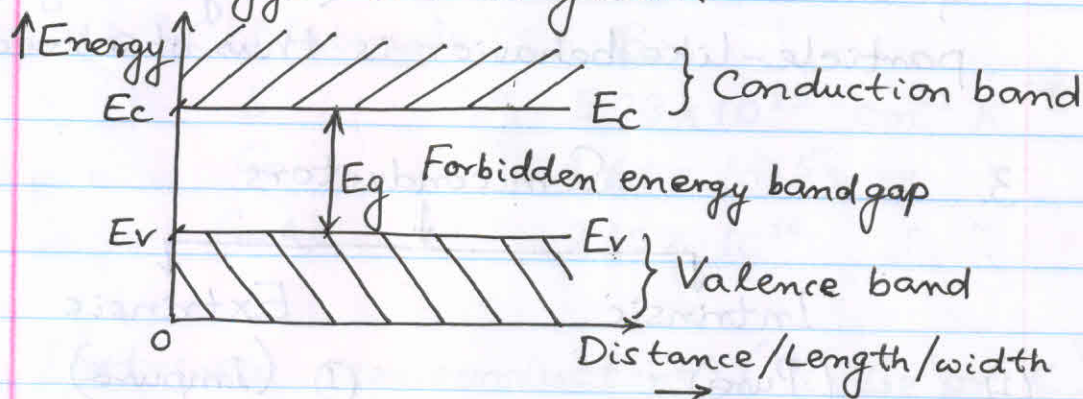 ↑ Energy
Conduction band
Ec Ec
Eg Forbidden energy bandgap
Ev Ev
Valence band
0
Distance/Length/width
→